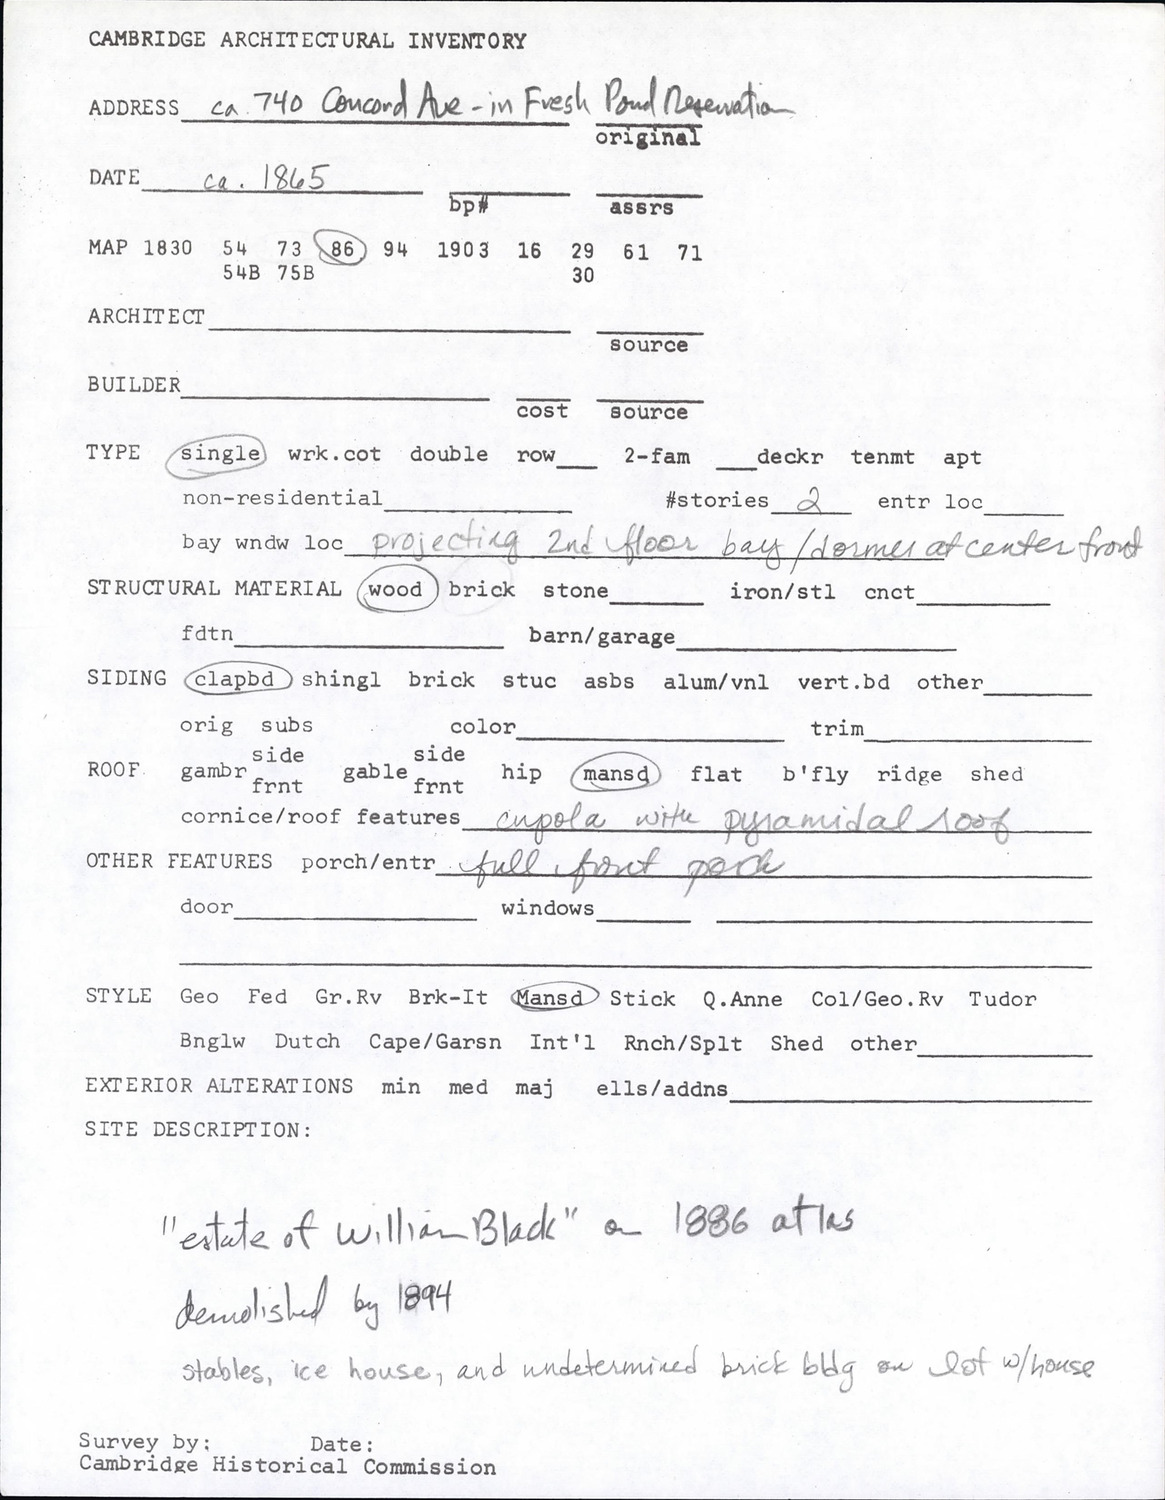 CAMBRIDGE ARCHITECTURAL INVENTORY
ADDRESS ca 740 Concord Ave - in Fresh Pond Reservation
original
DATE ca. 1865
bp# assrs
MAP 1830 54 73 86 94 1903 16 29 61 71
54B 75B 30
ARCHITECT
source
BUILDER
cost source
TYPE single wrk.cot double row 2-fam deckr tenmt apt
non-residential #stories 2 entr loc
bay wndw loc projecting 2nd floor bay/dormer at center front
STRUCTURAL MATERIAL wood brick stone iron/stl cnct
fdtn barn/garage
SIDING clapbd shingl brick stuc asbs alum/vnl vert.bd other
orig subs color trim
side side
ROOF gambr gable hip mansd flat b'fly ridge shed
frnt frnt
cornice/roof features cupola with pyramidal roof
OTHER FEATURES porch/entr full front porch
door windows
STYLE Geo Fed Gr.Rv Brk-It Mansd Stick Q.Anne Col/Geo.Rv Tudor
Bnglw Dutch Cape/Garsn Int'l Rnch/Splt Shed other
EXTERIOR ALTERATIONS min med maj ells/addns
SITE DESCRIPTION:
"estate of William Black" on 1886 atlas
demolished by 1894
stables, ice house, and undetermined brick bldg on lot w/house
Survey by: Date:
Cambridge Historical Commission